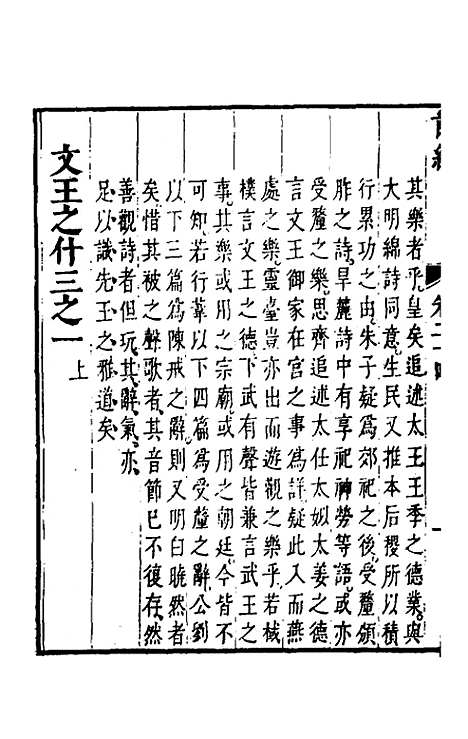 其樂者乎皇矣追述太王王季之德業與
大明綿詩同意生民又推本后稷所以積
行累功之由朱子疑爲郊祀之後受釐頒
胙之詩旱麓詩中有享祀神勞等語或亦
受釐之樂思齊追述太任太姒太姜之德
言文王御家在宮之事爲詳疑此入而燕
處之樂靈臺豈亦出而遊觀之樂乎若棫
樸言文王之德下武有聲皆兼言武王之
事其樂或用之宗廟或用之朝廷今皆不
可知若行葦以下四篇爲受釐之辭公劉
以下三篇爲陳戒之辭則又明白曉然者
矣惜其被之聲歌者其音節已不復存然
善觀詩者但玩其辭氣亦
足以識先王之雅道矣
文王之什三之一上